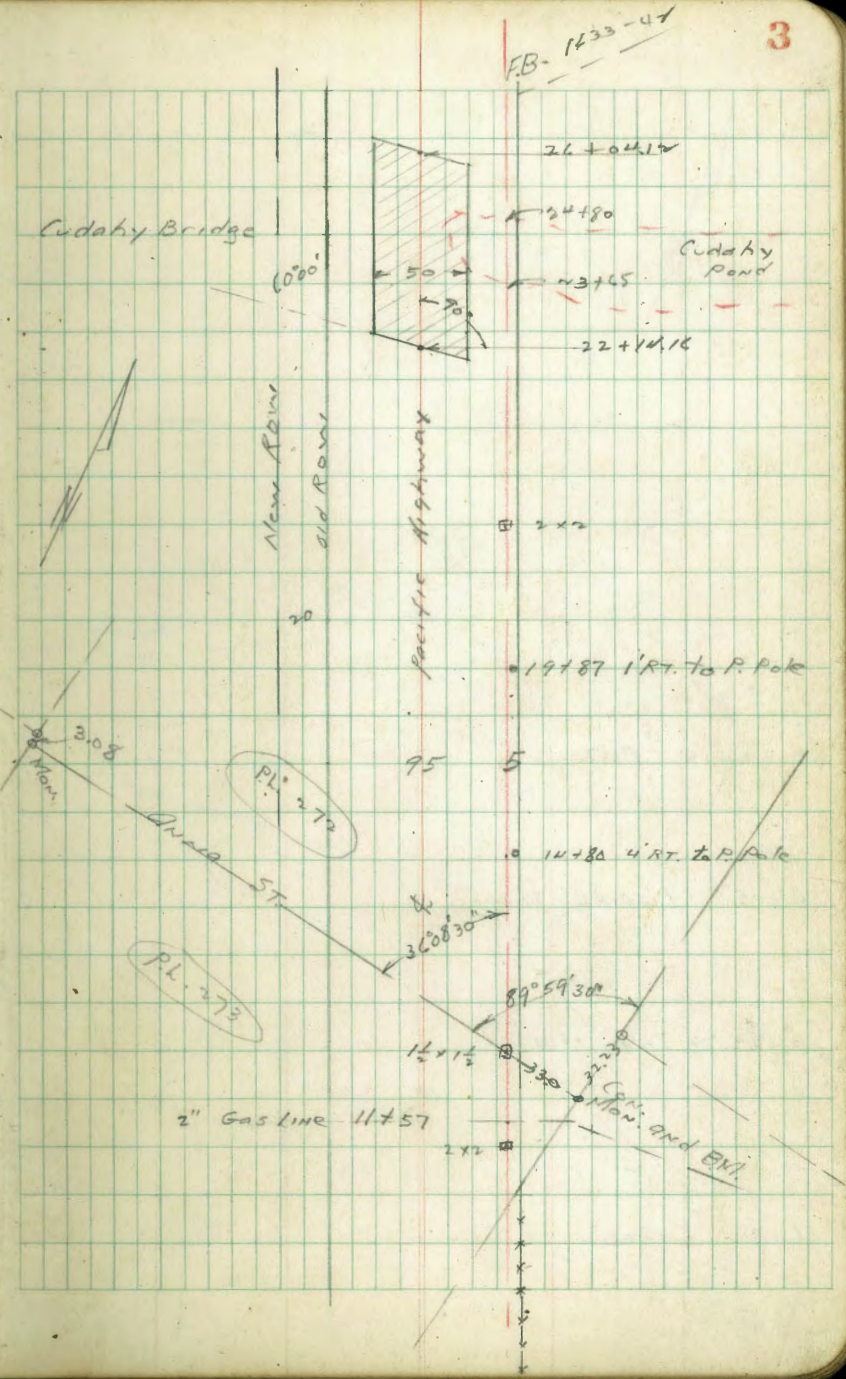 3
F.B- 1433-42
26+04.12
24+80
Cudahy Bridge
Cudahy
Pond
60°00'
50
23+65
70°
22+14.16
New Row
old Row
Pacific Highway
2x2
20
19+87 1' RT. to P. Pole
3.08
Mon.
P.L. 272
95 5
Anna ST.
14+80 4' RT. to P. Pole
36°08'30"
P.L. 273
89°59'30"
1½ x 1½
33.0
32.23
Con.
Mon. and BM.
2" Gas Line 11+57
2x2